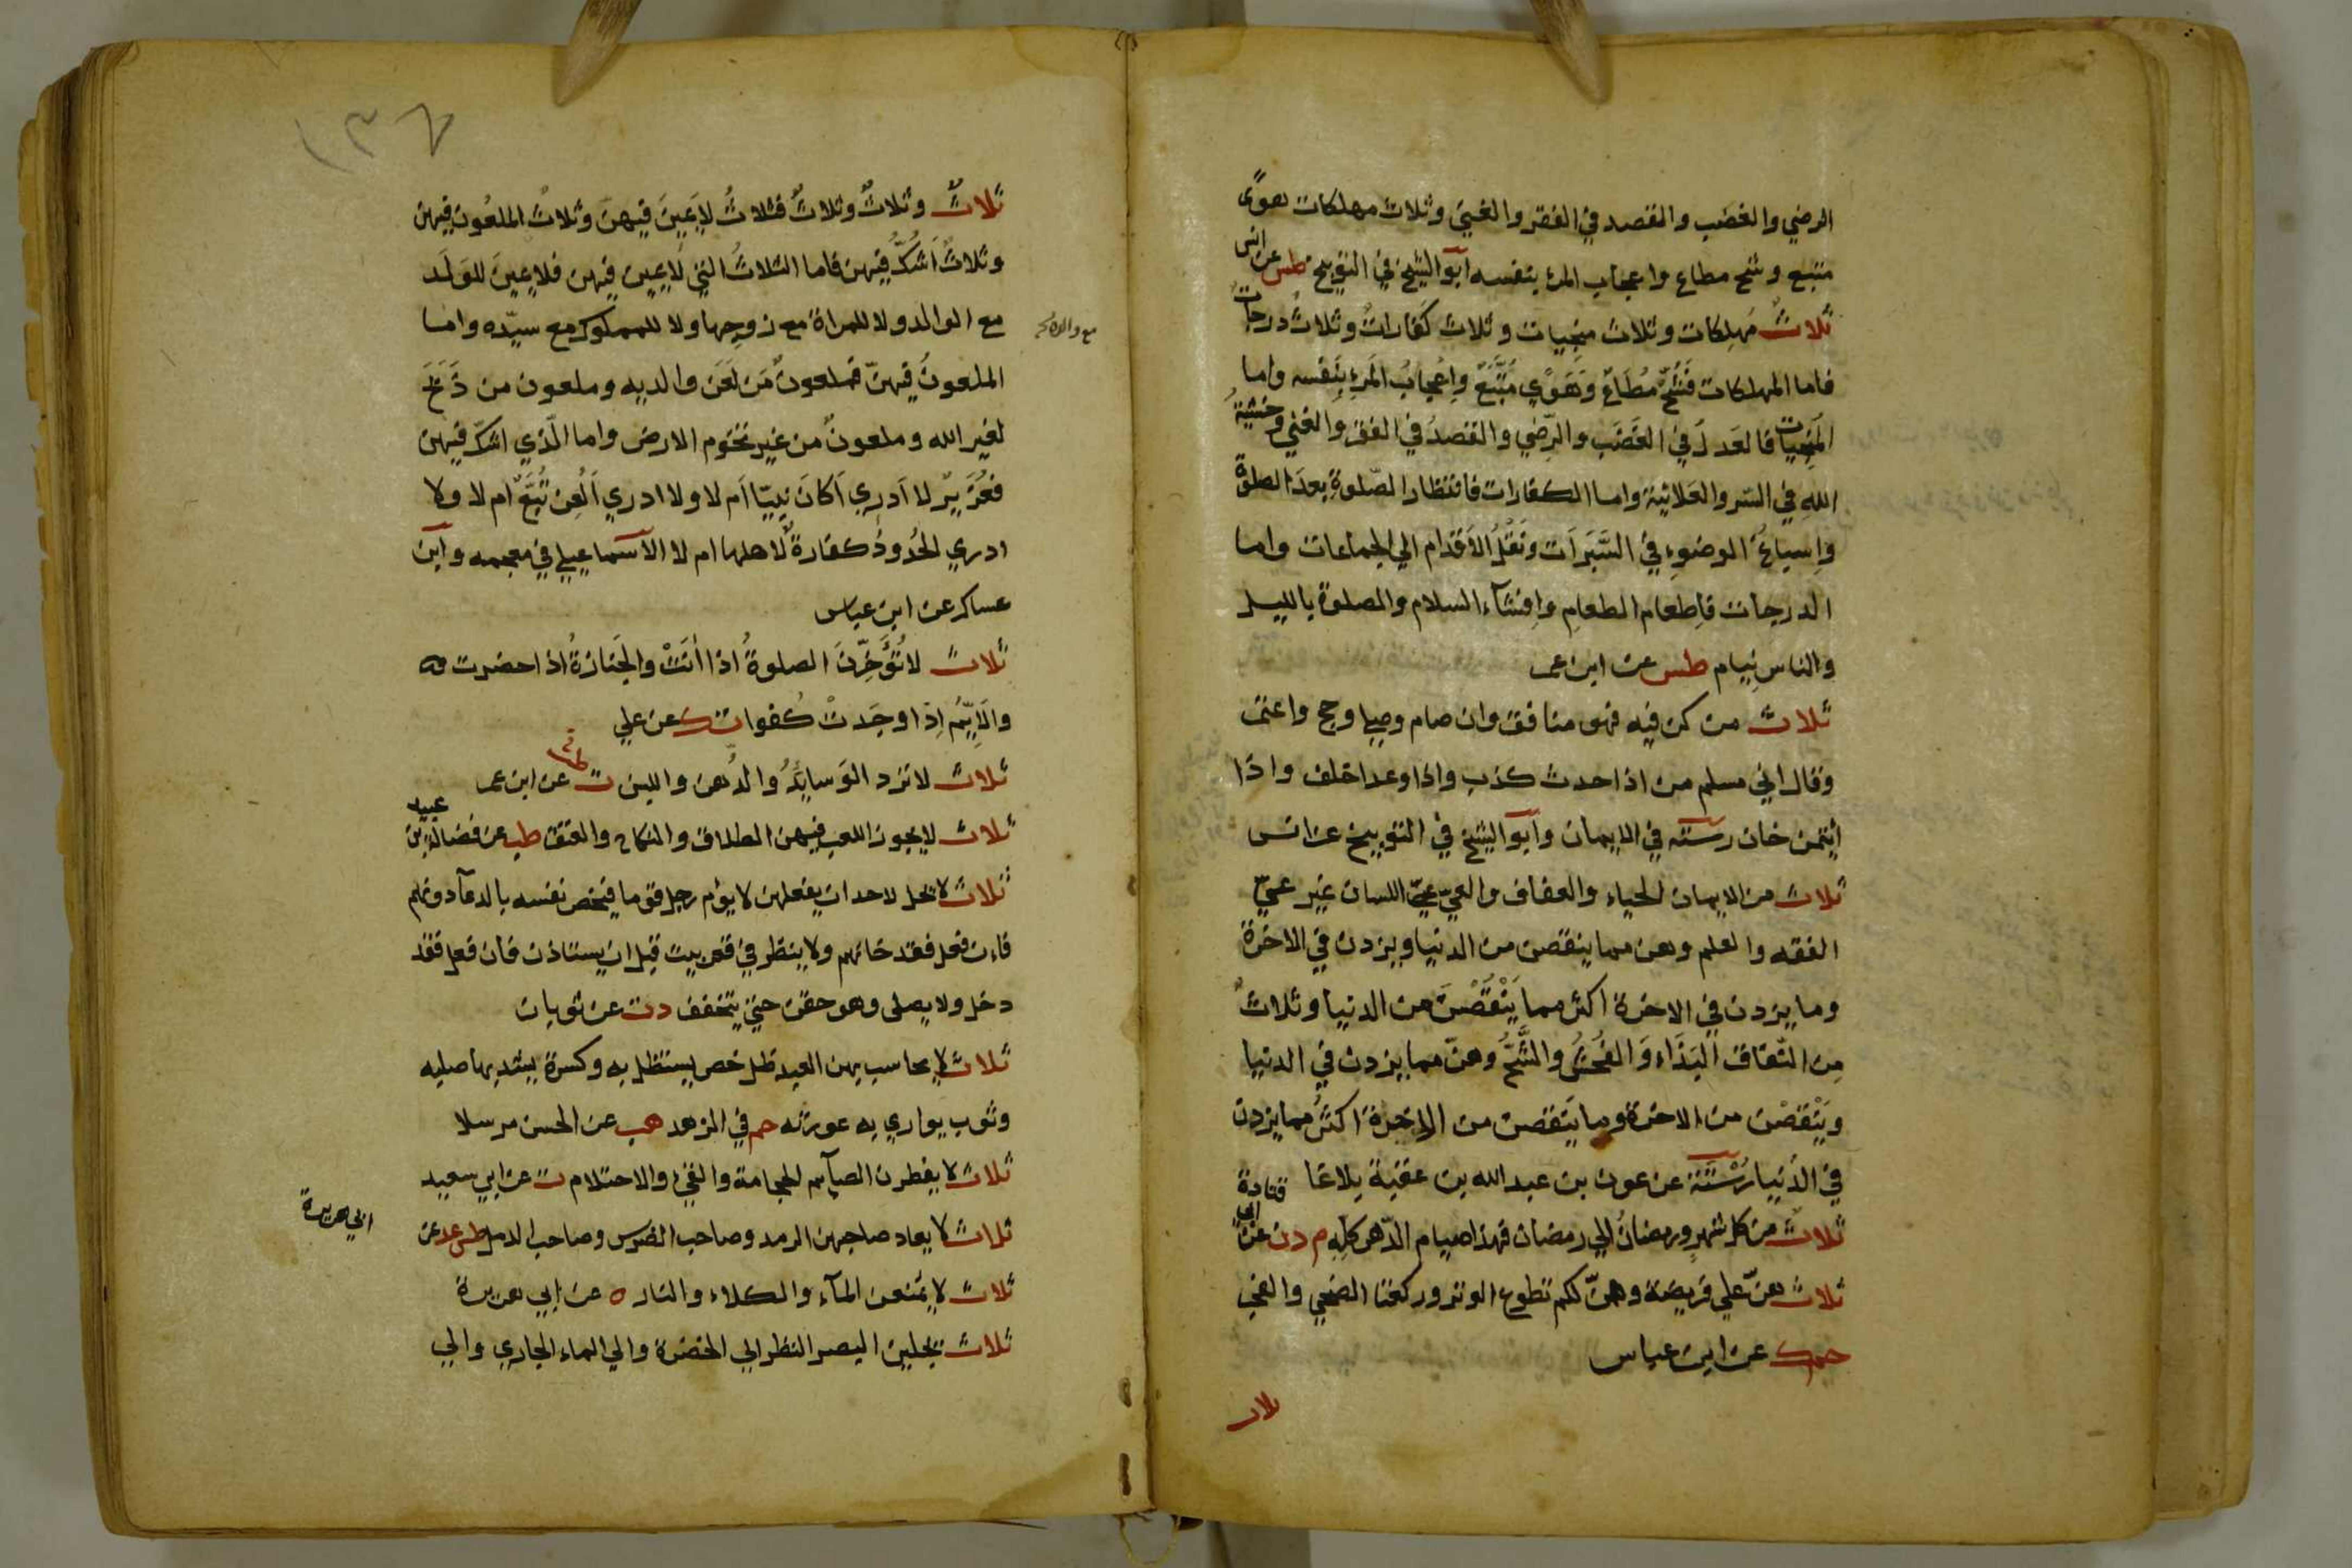 الرضي والغضب والقصد في الفقر والغني وثلاث مهلكات هوًى
متبع وشح مطاع واعجاب المرء بنفسه ابو الشيخ في التوبيخ طس عن انس
ثلاثٌ مُهلِكات وثلاث منجيات وثلاث كَفاراتٌ وثلاثٌ درجاتٌ
فاما المهلكات فَشُحٌّ مُطَاعٌ وَهَوًي مُتَّبَعٌ واِعْجابُ المَرءِ بِنَفْسه واما
المُنجِيات فالعَدلُ في الغَضَب والرِّضي والقَصدُ في الفقر والغني وخشيةُ
اللهِ في السّر والعَلانية واما الكفارات فانتظار الصّلوةِ بعدَ الصلوة
وإسباغُ الوضوءِ في السَّبَرَات ونَقْلُ الأَقدام الي الجماعات واما
الدرجات فاِطعام الطعامِ واِفشآء السلام والصلوة بالليل
والناس نِيام طس عن ابن عمر
ثلاث من كن فيه فهو منافق وان صام وصلي وحج واعتمر
وقال اني مسلم من اذا حدث كذب واذا وعد اخلف واذا
ايتمن خان رسته في الايمان وابو الشيخ في التوبيخ عن انس
ثلاث من الايمان الحياء والعفاف والعيّ عيّ اللسان غير عيّ
الفقه والعلم وهن مما ينقصن من الدنيا ويزدن في الاخرة
وما يزدن في الاخرة اكثر مما يَنْقُصْنَ من الدنيا وثلاثٌ
مِن النّفاق البَذَاء وَالفُحْشُ والشُّحُّ وهنّ مما يزدن في الدنيا
ويَنْقصْن من الاخرة وما يَنقصن من الاخِرة اكثرُ مما يزدن
في الدُنيا رُسْتَة عن عون بن عبد الله بن عقبة بلاغا
ثلاثٌ من كل شهرٍ ورمضانُ الي رمضان فهذا صيام الدّهر كلِّهِ م دن عن ابي قتادة
ثلاث هنّ علي فريضة وهنّ لكم تطوع الوتر وركعتا الضحي والفجر
حم ك عن ابن عباس
ثلاث
١٣٦
ثلاثٌ وثلاثٌ وثلاثٌ فثلاثٌ لايَمِينَ فيهنّ وثلاثٌ الملعُون فيهن
وثلاثٌ اَشُكُّ فيهن فاما الثلاثُ التي لايمِين فيهن فلايمينَ للوَلَد
مع الوالد ولا للمراة مع زوجِها ولا للمملوك مع سيّده واما
مع والده
الملعونُ فيهنّ فملعونٌ مَن لعَن والديه وملعون من ذَبَحَ
لغير الله وملعونٌ من غير تخوم الارض واما الّذي اشكّ فيهن
فعُزَيرٌ لا اَدرِي اَكانَ نبيّا اَم لا ولا ادري اَلُعِن تُبَّعٌ ام لا ولا
ادري الحُدودُ كفارةٌ لاهلها ام لا الاسماعيلي في معجمه وابن
عساكر عن ابن عباس
ثلاثٌ لا تُؤَخِّرْنَ الصلوةُ اذا أتَتْ والجَنازةُ اذا حضرت
والاَيِّمُ اِذا وجَدتْ كُفوا ت ك عن علي
ثلاث لا ترد الوَسايِدُ والدُّهن واللبن ت عن ابن عمر
ثلاث لايجوز اللعب فيهن الطلاق والنكاح والعتق طب عن فضالة بن عبيد
ثلاثٌ لا يحل لاحد ان يفعلهن لا يؤم رجل قوما فيخص نفسه بالدعآء دونهم
فان فعل فقد خانهم ولا ينظر في قعر بيت قبل ان يستاذن فان فعل فقد
دخل ولا يصلى وهو حقن حتي يتخفف دت عن ثوبان
ثلاث لا يحاسب بهن العبد ظل خص يستظل به وكسرة يشد بها صلبه
وثوب يواري به عورته حم في الزهد هب عن الحسن مرسلا
ثلاث لا يفطرن الصآيم الحجامة والقيء والاحتلام ت عن ابي سعيد
ثلاث لا يعاد صاحبهن الرمد وصاحب الضرس وصاحب الدمل طس عد عن
ابي هريرة
ثلاث لا يُمنعن المآء والكلاء والنار ه عن ابي هريرة
ثلاث يجلين البصر النظر الي الخضرة والي الماء الجاري والي